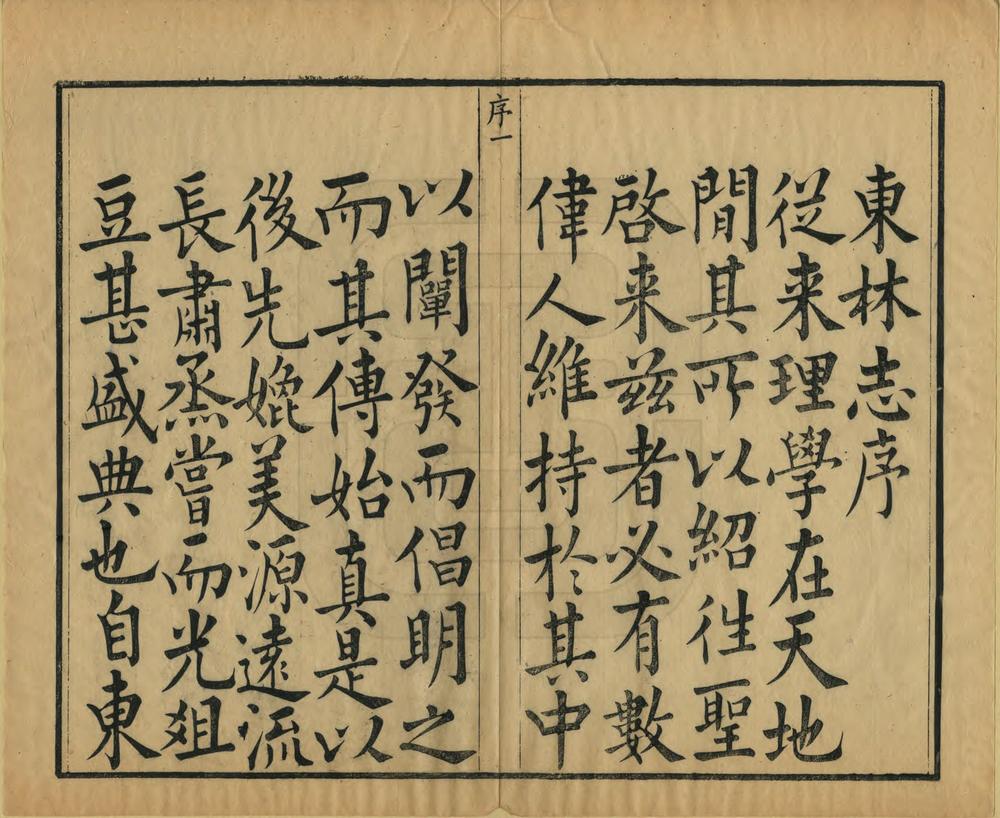 東林志序
從来理學在天地
閒其可以紹徃聖
啓来兹者必有數
偉人維持於其中
序一
以闡發而倡明之
而其傳始真是以
後先媲美源遠流
長肅烝嘗而光爼
豆甚盛典也自東